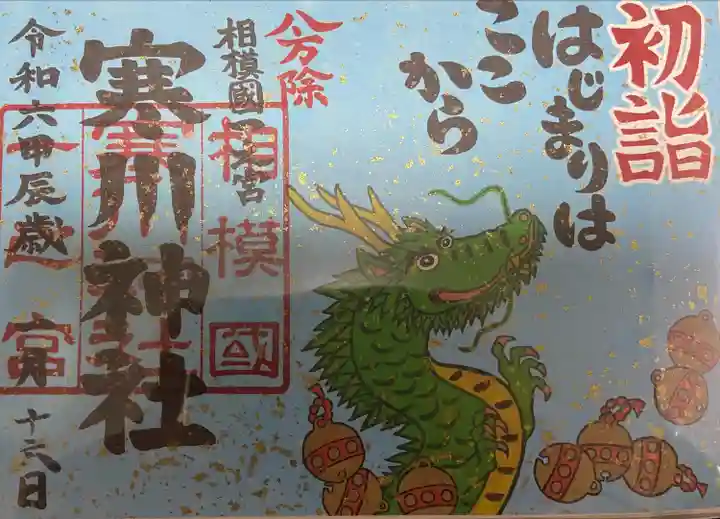 初詣
はじまりは
ここ
から
八方除
相模國一之宮
寒川神社
令和六甲辰歳
十六日
相模國
一之宮